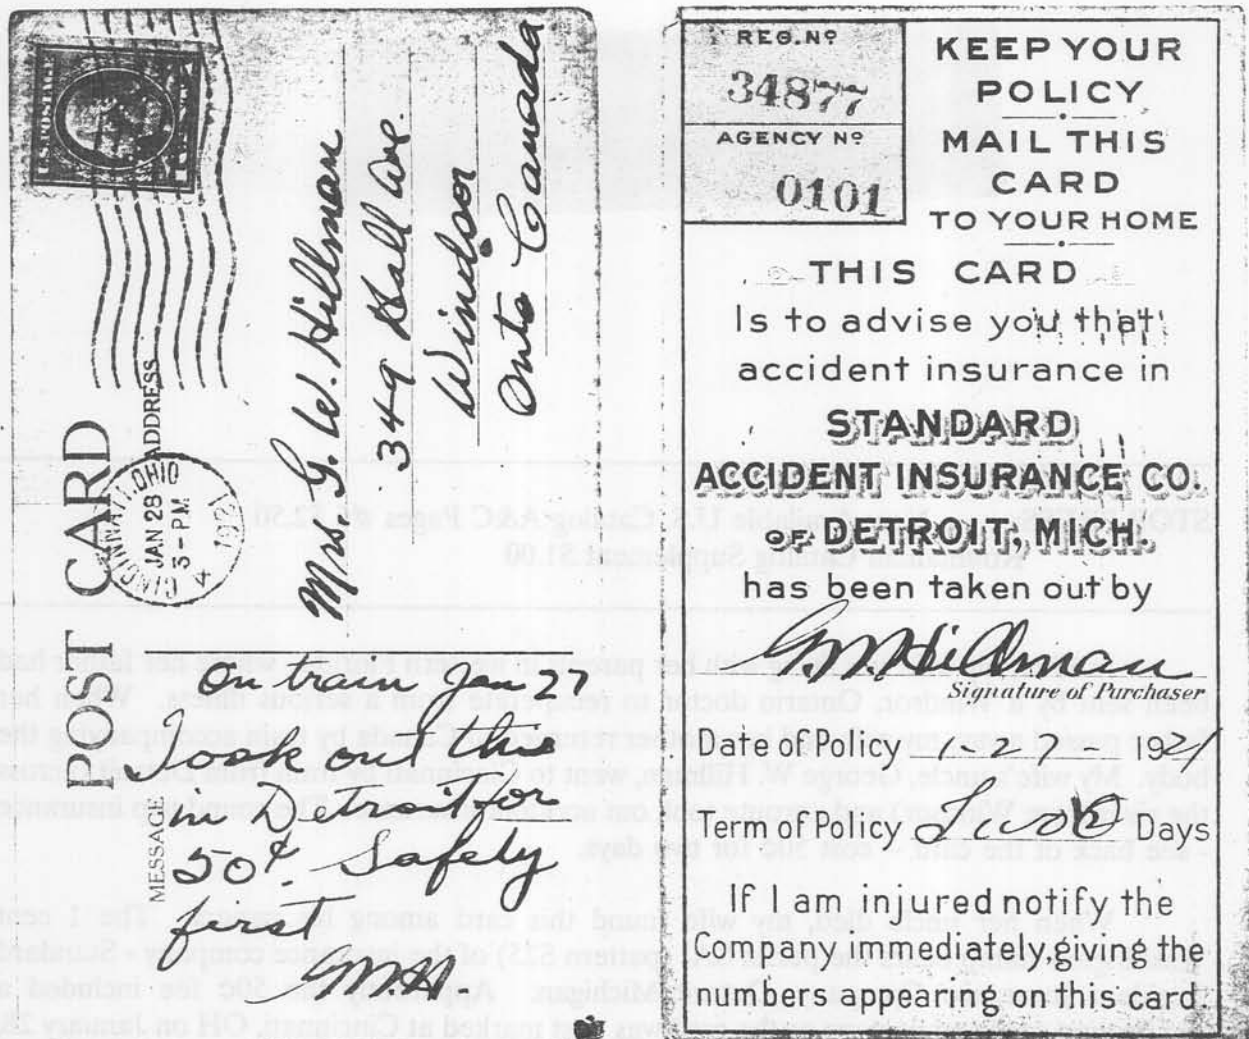 POST CARD
ADDRESS
MESSAGE
CINCINNATI, OHIO
JAN 28
3-PM
1921
4
Mrs. G. W. Hillman
349 Hall Ave.
Windsor
Onto Canada
On train Jan 27
Took out this
in Detroit for
50¢. Safety
first
GWH
REG. Nº
34877
AGENCY Nº
0101
KEEP YOUR
POLICY
MAIL THIS
CARD
TO YOUR HOME
THIS CARD
Is to advise you that
accident insurance in
STANDARD
ACCIDENT INSURANCE CO.
OF DETROIT, MICH.
has been taken out by
GW Hillman
Signature of Purchaser
Date of Policy 1-27- 1921
Term of Policy Two Days
If I am injured notify the
Company immediately, giving the
numbers appearing on this card.